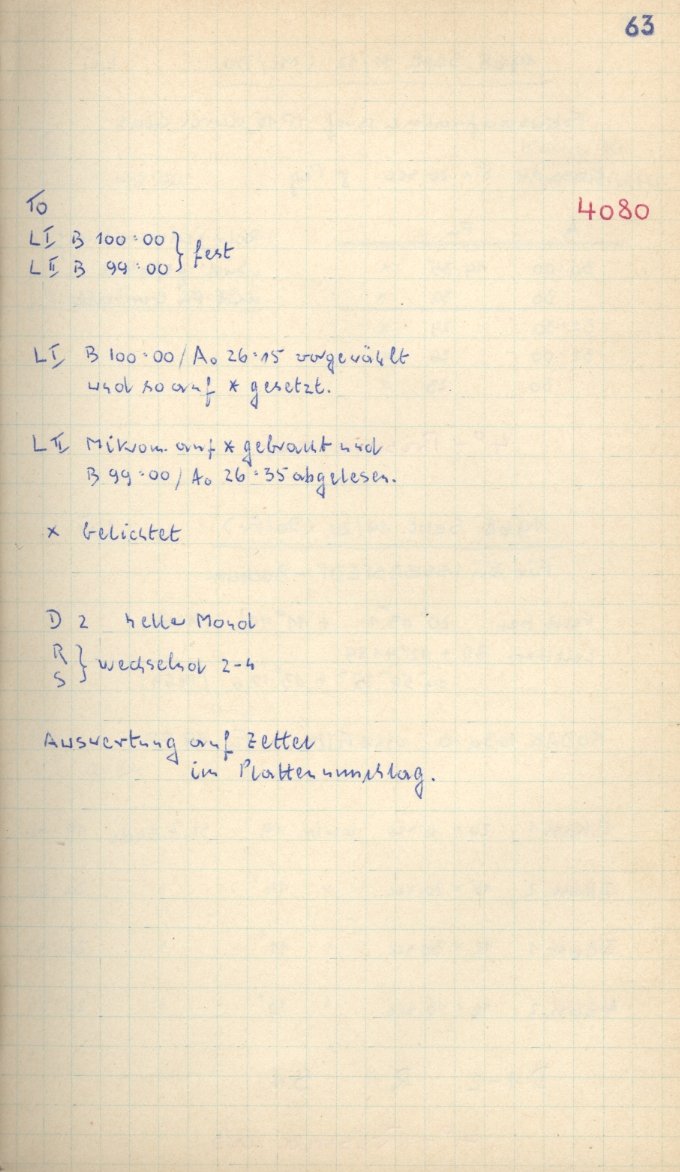 63
To
4080
LI B 100:00 } fest
LII B 99:00
LI B 100:00/A₀ 26:15 vorgewählt
und so auf * gesetzt.
LII Mikrom. auf * gebracht und
B 99:00/A₀ 26:35 abgelesen.
* belichtet
D 2 heller Mond
R } wechselnd 2-4
S
Auswertung auf Zettel
im Plattenumschlag.